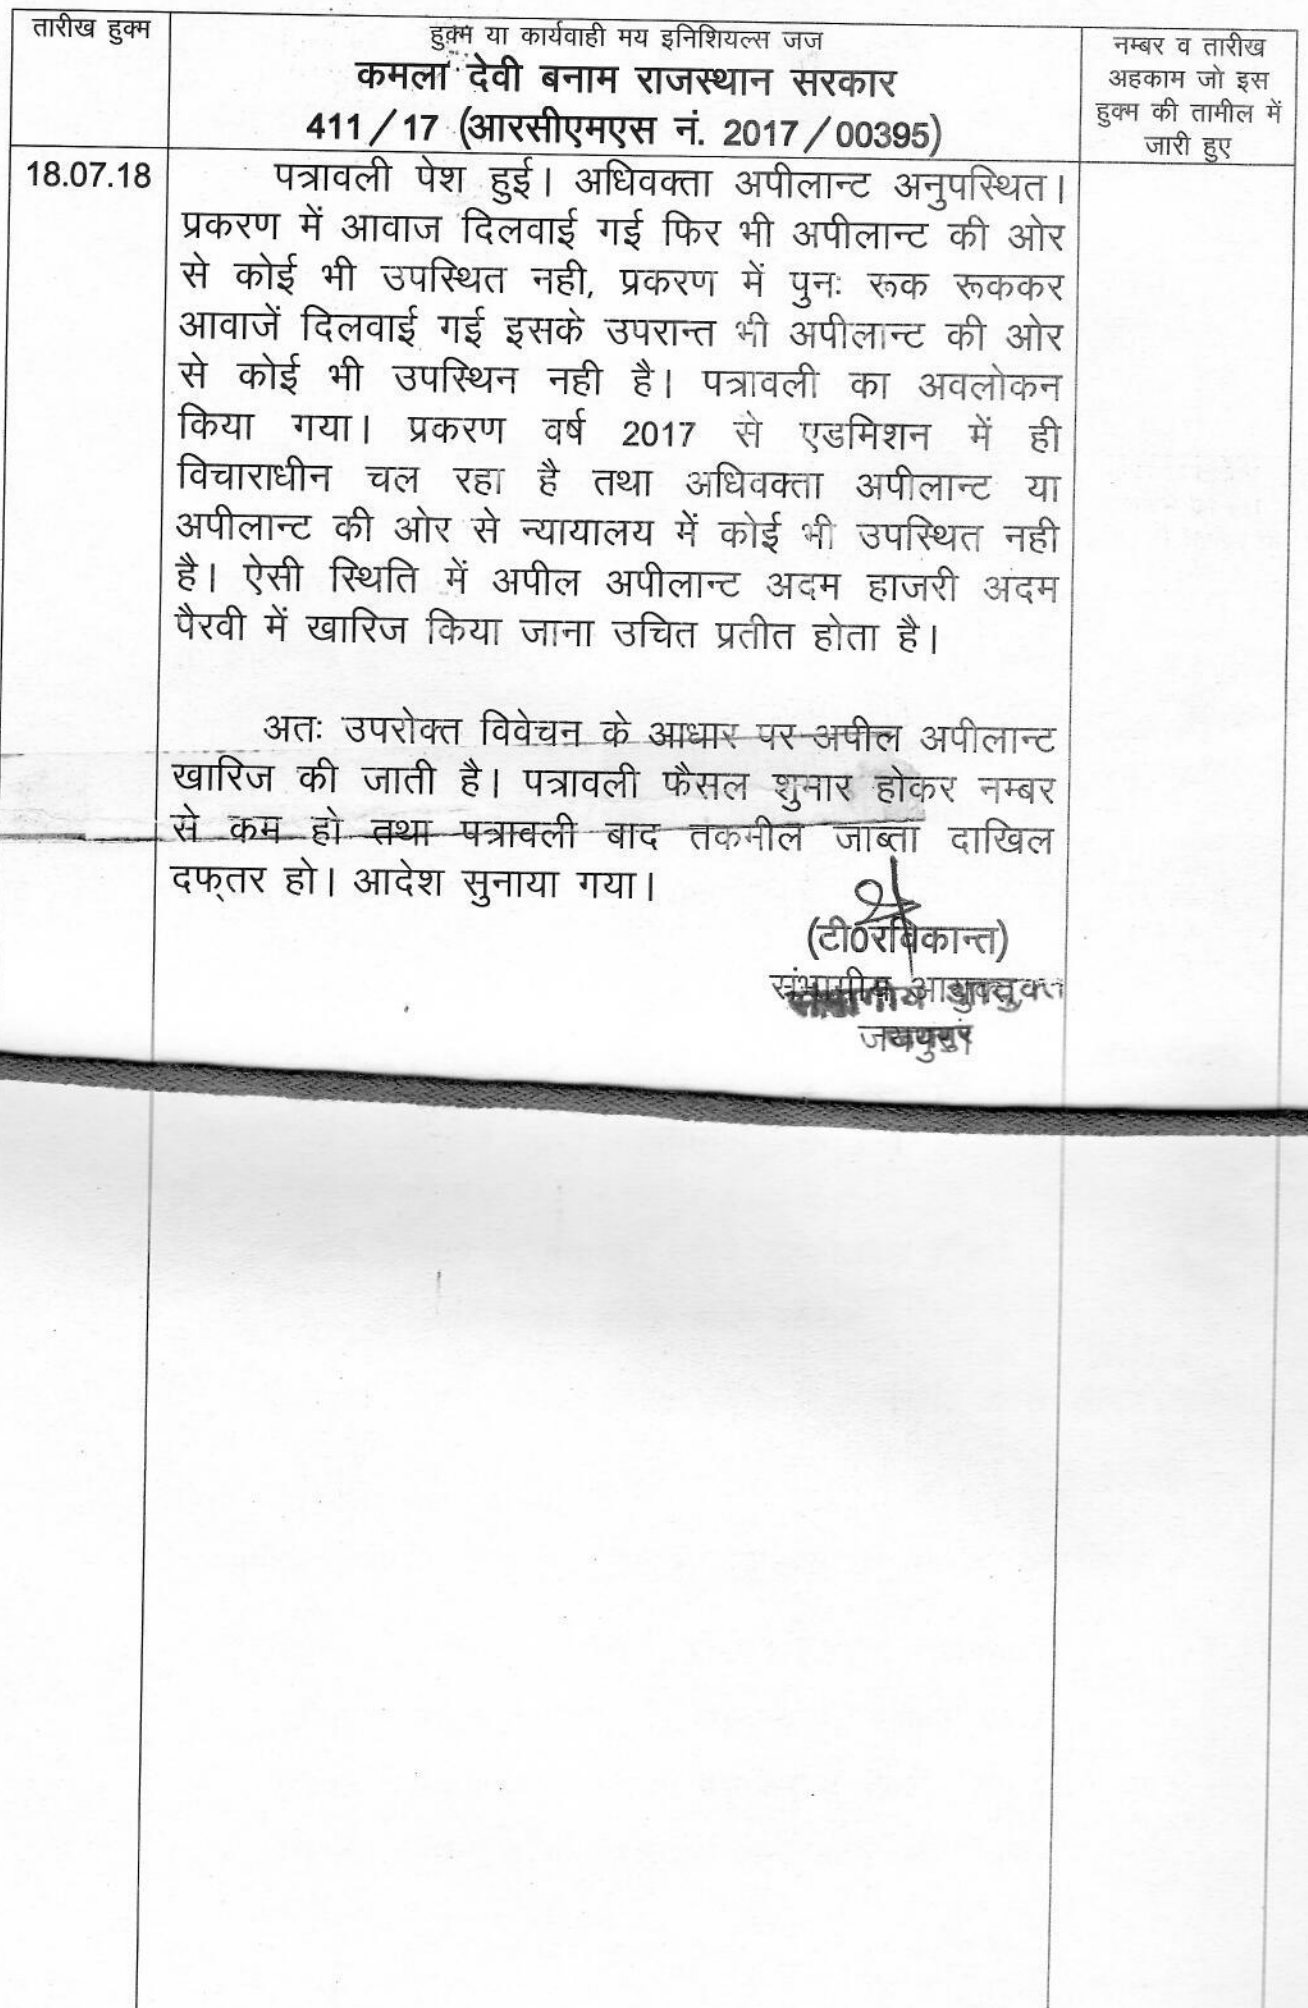 तारीख हुक्म
हुक्म या कार्यवाही मय इनिशियल्स जज
कमला देवी बनाम राजस्थान सरकार
411/17 (आरसीएमएस नं. 2017/00395)
नम्बर व तारीख
अहकाम जो इस
हुक्म की तामील में
जारी हुए
18.07.18
पत्रावली पेश हुई। अधिवक्ता अपीलान्ट अनुपस्थित।
प्रकरण में आवाज दिलवाई गई फिर भी अपीलान्ट की ओर
से कोई भी उपस्थित नही, प्रकरण में पुनः रूक रूककर
आवाजें दिलवाई गई इसके उपरान्त भी अपीलान्ट की ओर
से कोई भी उपस्थिन नही है। पत्रावली का अवलोकन
किया गया। प्रकरण वर्ष 2017 से एडमिशन में ही
विचाराधीन चल रहा है तथा अधिवक्ता अपीलान्ट या
अपीलान्ट की ओर से न्यायालय में कोई भी उपस्थित नही
है। ऐसी स्थिति में अपील अपीलान्ट अदम हाजरी अदम
पैरवी में खारिज किया जाना उचित प्रतीत होता है।
अतः उपरोक्त विवेचन के आधार पर अपील अपीलान्ट
खारिज की जाती है। पत्रावली फैसल शुमार होकर नम्बर
से कम हो तथा पत्रावली बाद तकमील जाब्ता दाखिल
दफ्तर हो। आदेश सुनाया गया।
(टी0रविकान्त)
संभागीय आयुक्त
जयपुर